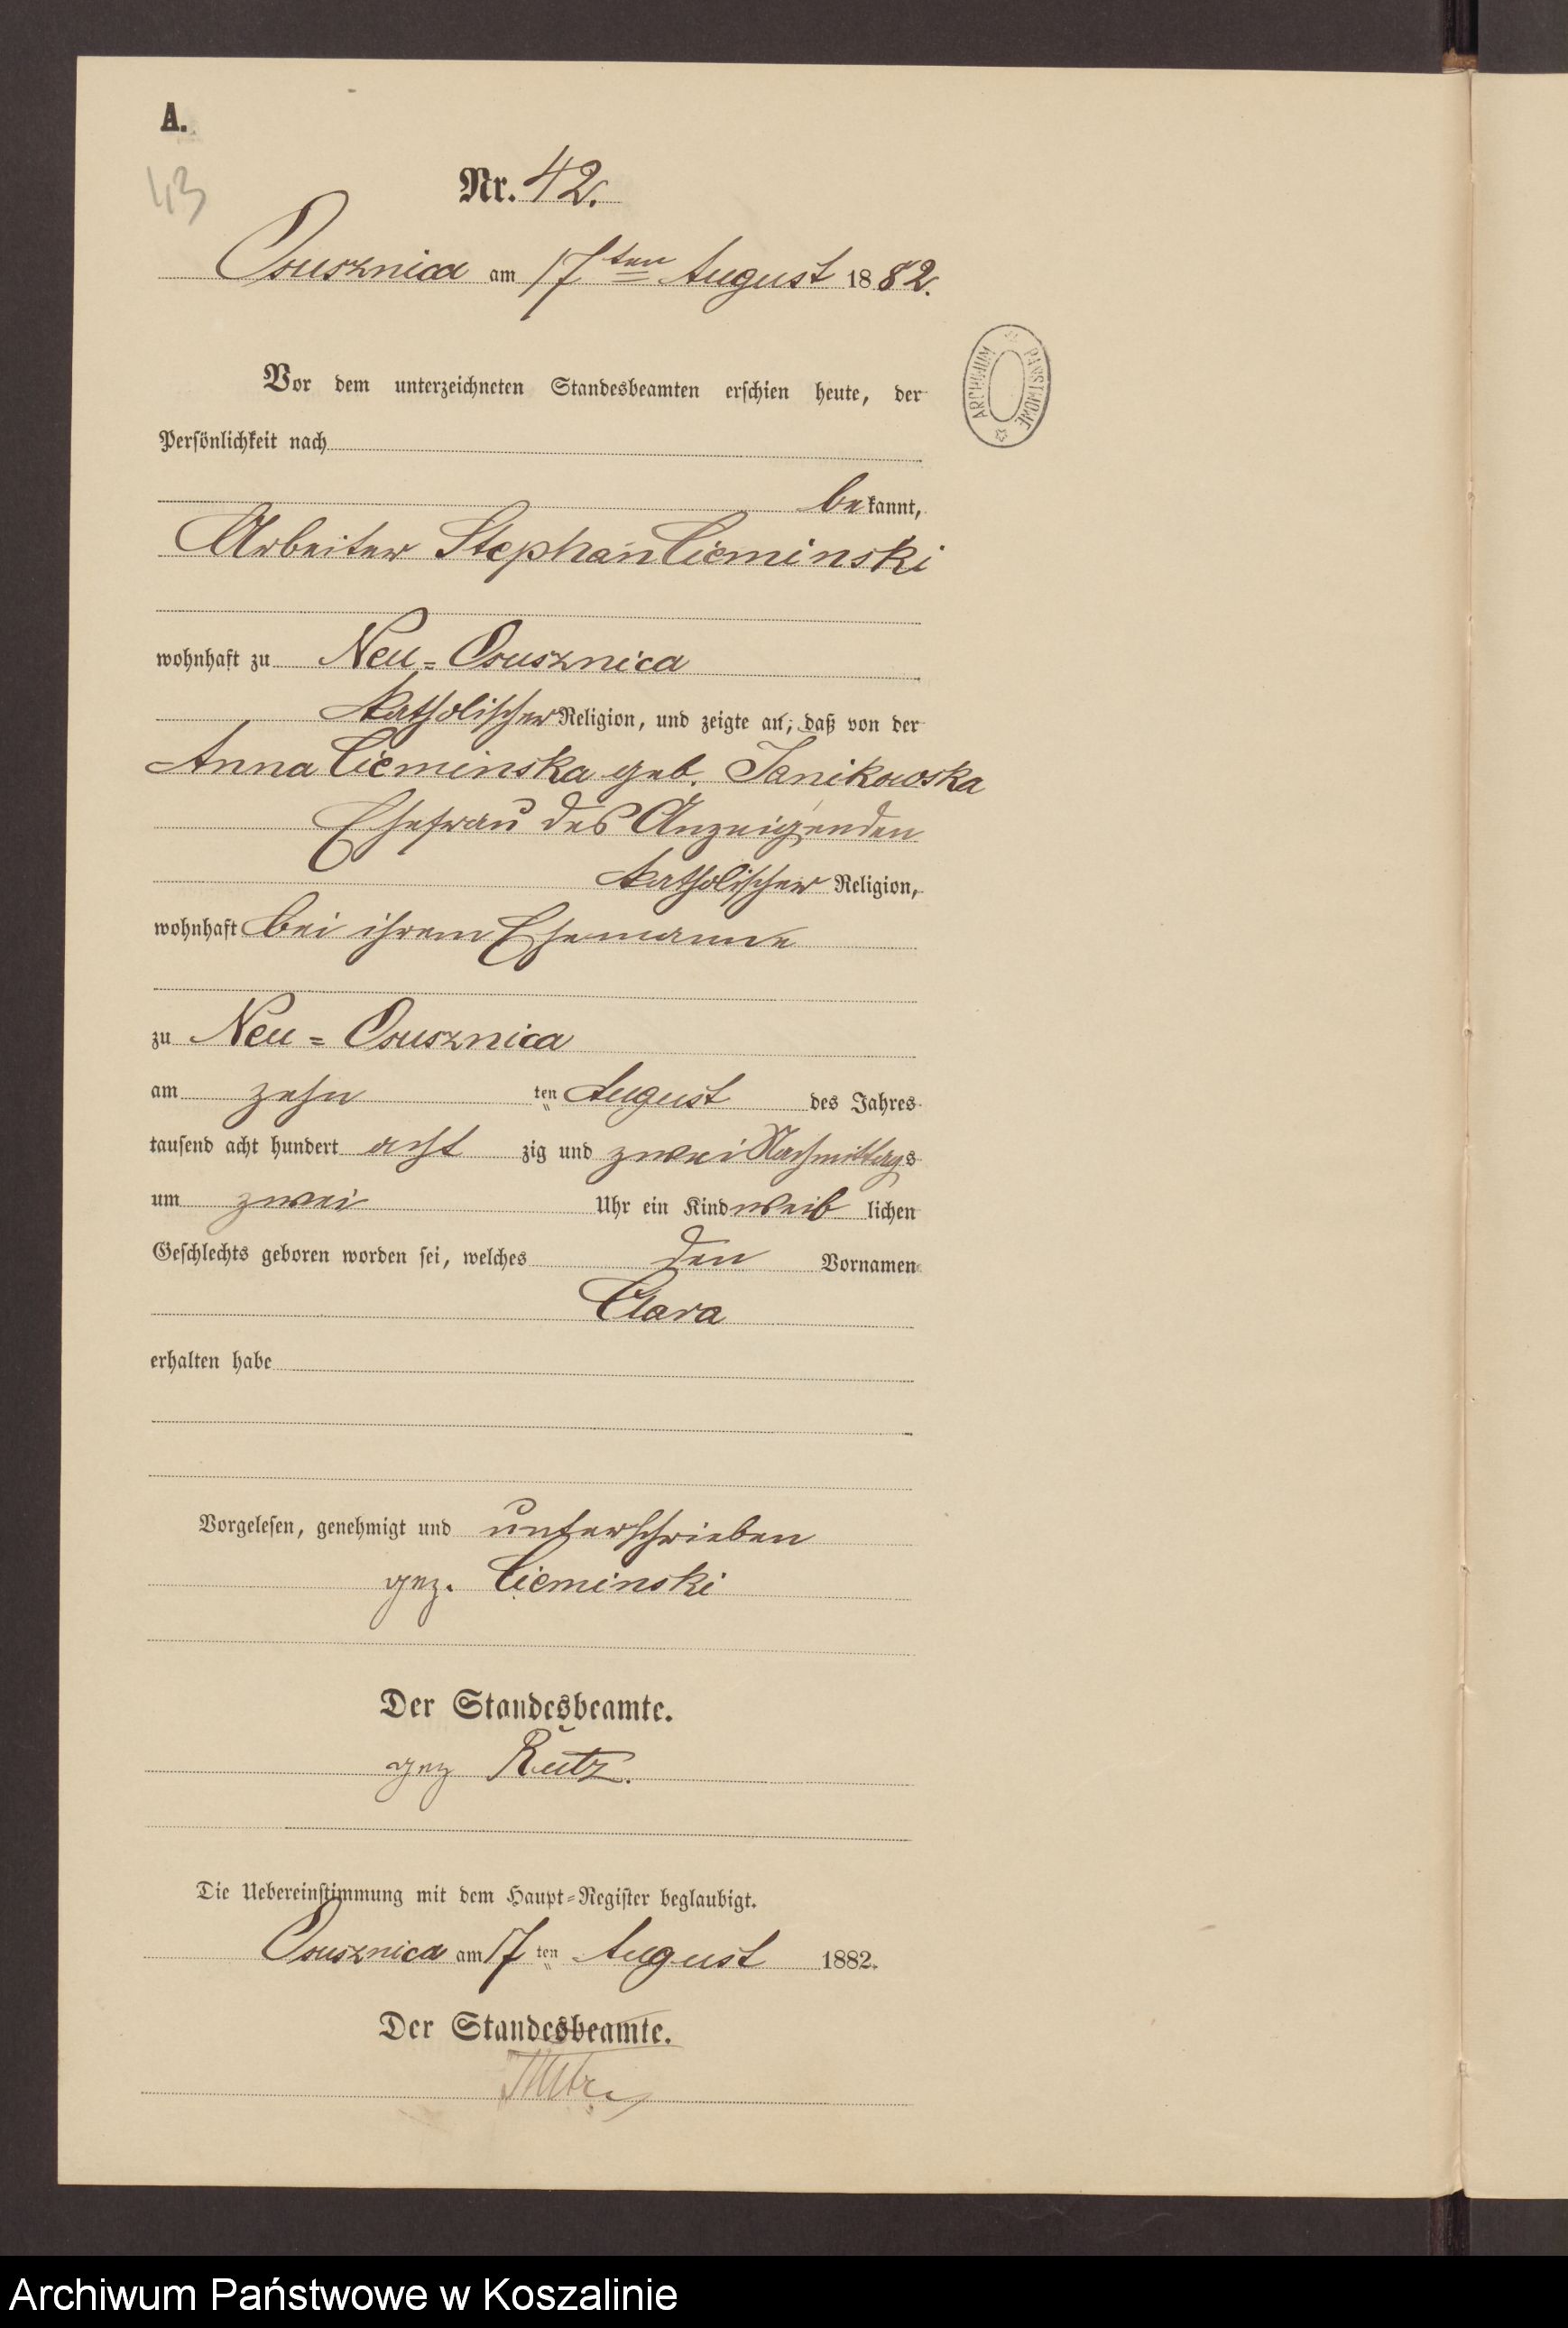 A.
43
Nr. 42.
Osusznica am 17ten August 1882.
ARCHIWUM PAŃSTWOWE
Vor dem unterzeichneten Standesbeamten erschien heute, der
Persönlichkeit nach
bekannt,
Arbeiter Stephan Cieminski
wohnhaft zu Neu=Osusznica
katholischer Religion, und zeigte an, daß von der
Anna Cieminska geb. Janikowska
Ehefrau des Anzeigenden
katholischer Religion,
wohnhaft bei ihrem Ehemanne
zu Neu=Osusznica
am zehn ten August des Jahres
tausend acht hundert acht zig und zwei Nachmittags
um zwei Uhr ein Kind weib lichen
Geschlechts geboren worden sei, welches den Vornamen
Clara
erhalten habe
Vorgelesen, genehmigt und unterschrieben
gez. Cieminski
Der Standesbeamte.
gez Rutz.
Die Uebereinstimmung mit dem Haupt=Register beglaubigt.
Osusznica am 17ten August 1882.
Der Standesbeamte.
Archiwum Państwowe w Koszalinie